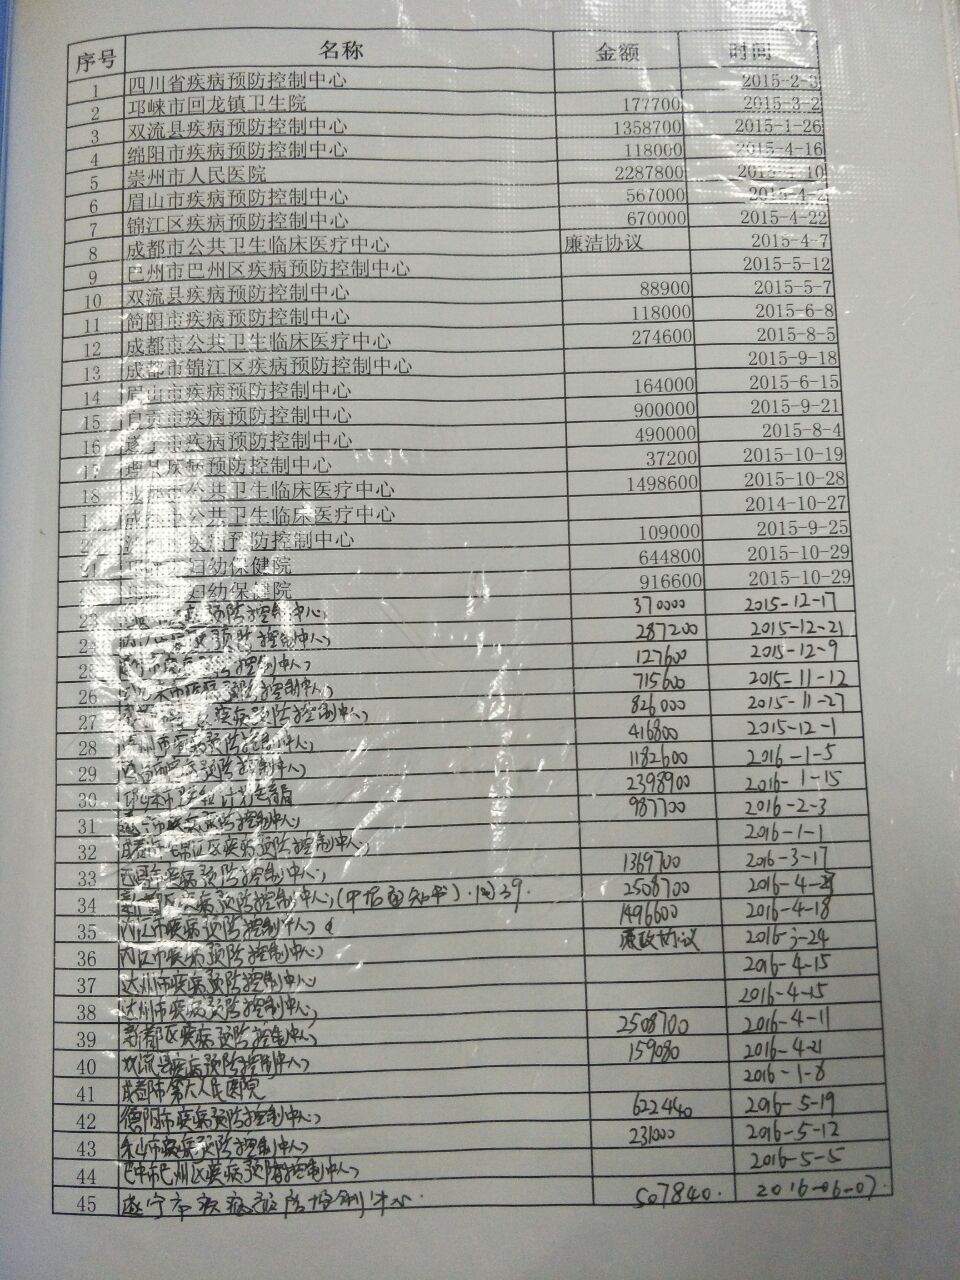 序号 名称 金额 时间
1 四川省疾病预防控制中心 2015-2-3
2 邛崃市回龙镇卫生院 177700 2015-3-2
3 双流县疾病预防控制中心 1358700 2015-1-26
4 绵阳市疾病预防控制中心 118000 2015-4-16
5 崇州市人民医院 2287800 2015-4-10
6 眉山市疾病预防控制中心 567000 2015-4-2
7 锦江区疾病预防控制中心 670000 2015-4-22
8 成都市公共卫生临床医疗中心 廉洁协议 2015-4-7
9 巴州市巴州区疾病预防控制中心 2015-5-12
10 双流县疾病预防控制中心 88900 2015-5-7
11 简阳市疾病预防控制中心 118000 2015-6-8
12 成都市公共卫生临床医疗中心 274600 2015-8-5
13 成都市锦江区疾病预防控制中心 2015-9-18
14 眉山市疾病预防控制中心 164000 2015-6-15
15 自贡市疾病预防控制中心 900000 2015-9-21
16 遂宁市疾病预防控制中心 490000 2015-8-4
17 理县疾病预防控制中心 37200 2015-10-19
18 成都市公共卫生临床医疗中心 1498600 2015-10-28
成都市公共卫生临床医疗中心 2014-10-27
疾病预防控制中心 109000 2015-9-25
妇幼保健院 644800 2015-10-29
妇幼保健院 916600 2015-10-29
23 预防控制中心 370000 2015-12-17
24 预防控制中心 287200 2015-12-21
25 控制中心 127600 2015-12-9
26 疾病预防控制中心 715600 2015-11-12
27 疾病预防控制中心 826000 2015-11-27
28 州市疾病预防控制中心 416800 2015-12-1
29 疾病预防控制中心 1182600 2016-1-5
30 邛崃市卫生和计划生育局 2398900 2016-1-15
31 遂宁市疾病预防控制中心 987700 2016-2-3
32 成都市锦江区疾病预防控制中心 2016-1-1
33 疾病预防控制中心 1369700 2016-3-17
34 新都区疾病预防控制中心(中标通知书)·同39. 2508700 2016-4-29
35 内江市疾病预防控制中心 1496600 2016-4-18
36 内江市疾病预防控制中心 廉政协议 2016-3-24
37 达州市疾病预防控制中心 2016-4-15
38 达州市疾病预防控制中心 2016-4-15
39 新都区疾病预防控制中心 2508700 2016-4-11
40 双流县疾病预防控制中心 159080 2016-4-21
41 成都市第六人民医院 2016-1-8
42 德阳市疾病预防控制中心 622440 2016-5-19
43 乐山市疾病预防控制中心 231000 2016-5-12
44 巴中市巴州区疾病预防控制中心 2016-5-5
45 遂宁市疾病预防控制中心. 507840. 2016-06-07.